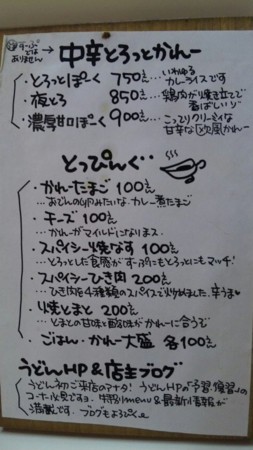 すーぷでは
ありません → 中辛とろっとかれー
・とろっとぽーく 750えん …いわゆるカレーライスです
・夜とろ 850えん …鶏肉が焼き立てで香ばしい♪
・濃厚甘口ぽーく 900えん …こってりクリーミィな甘辛な欧風かれー
とっぴんぐ・・
・かれーたまご 100えん
…おでんの卵みたいな、カレー煮たまご
・チーズ 100えん
…かれーがマイルドになりまス
・スパイシー焼なす 100えん
…とろっとした食感がすーぷにもとろっとにもマッチ!
・スパイシーひき肉 200えん
…ひき肉を4種類のスパイスで炒めました。辛うま
・焼とまと 200えん
…とまとの甘味と酸味がかれーに合うで
・ごはん・かれー大盛 各100えん
うどんHP&店主ブログ
うどん初ご来店のアナタ! うどんHPの「予習、復習」の
コーナー必見ですョ 特別menu&最新情報が
満載です。 ブログもよろぴく